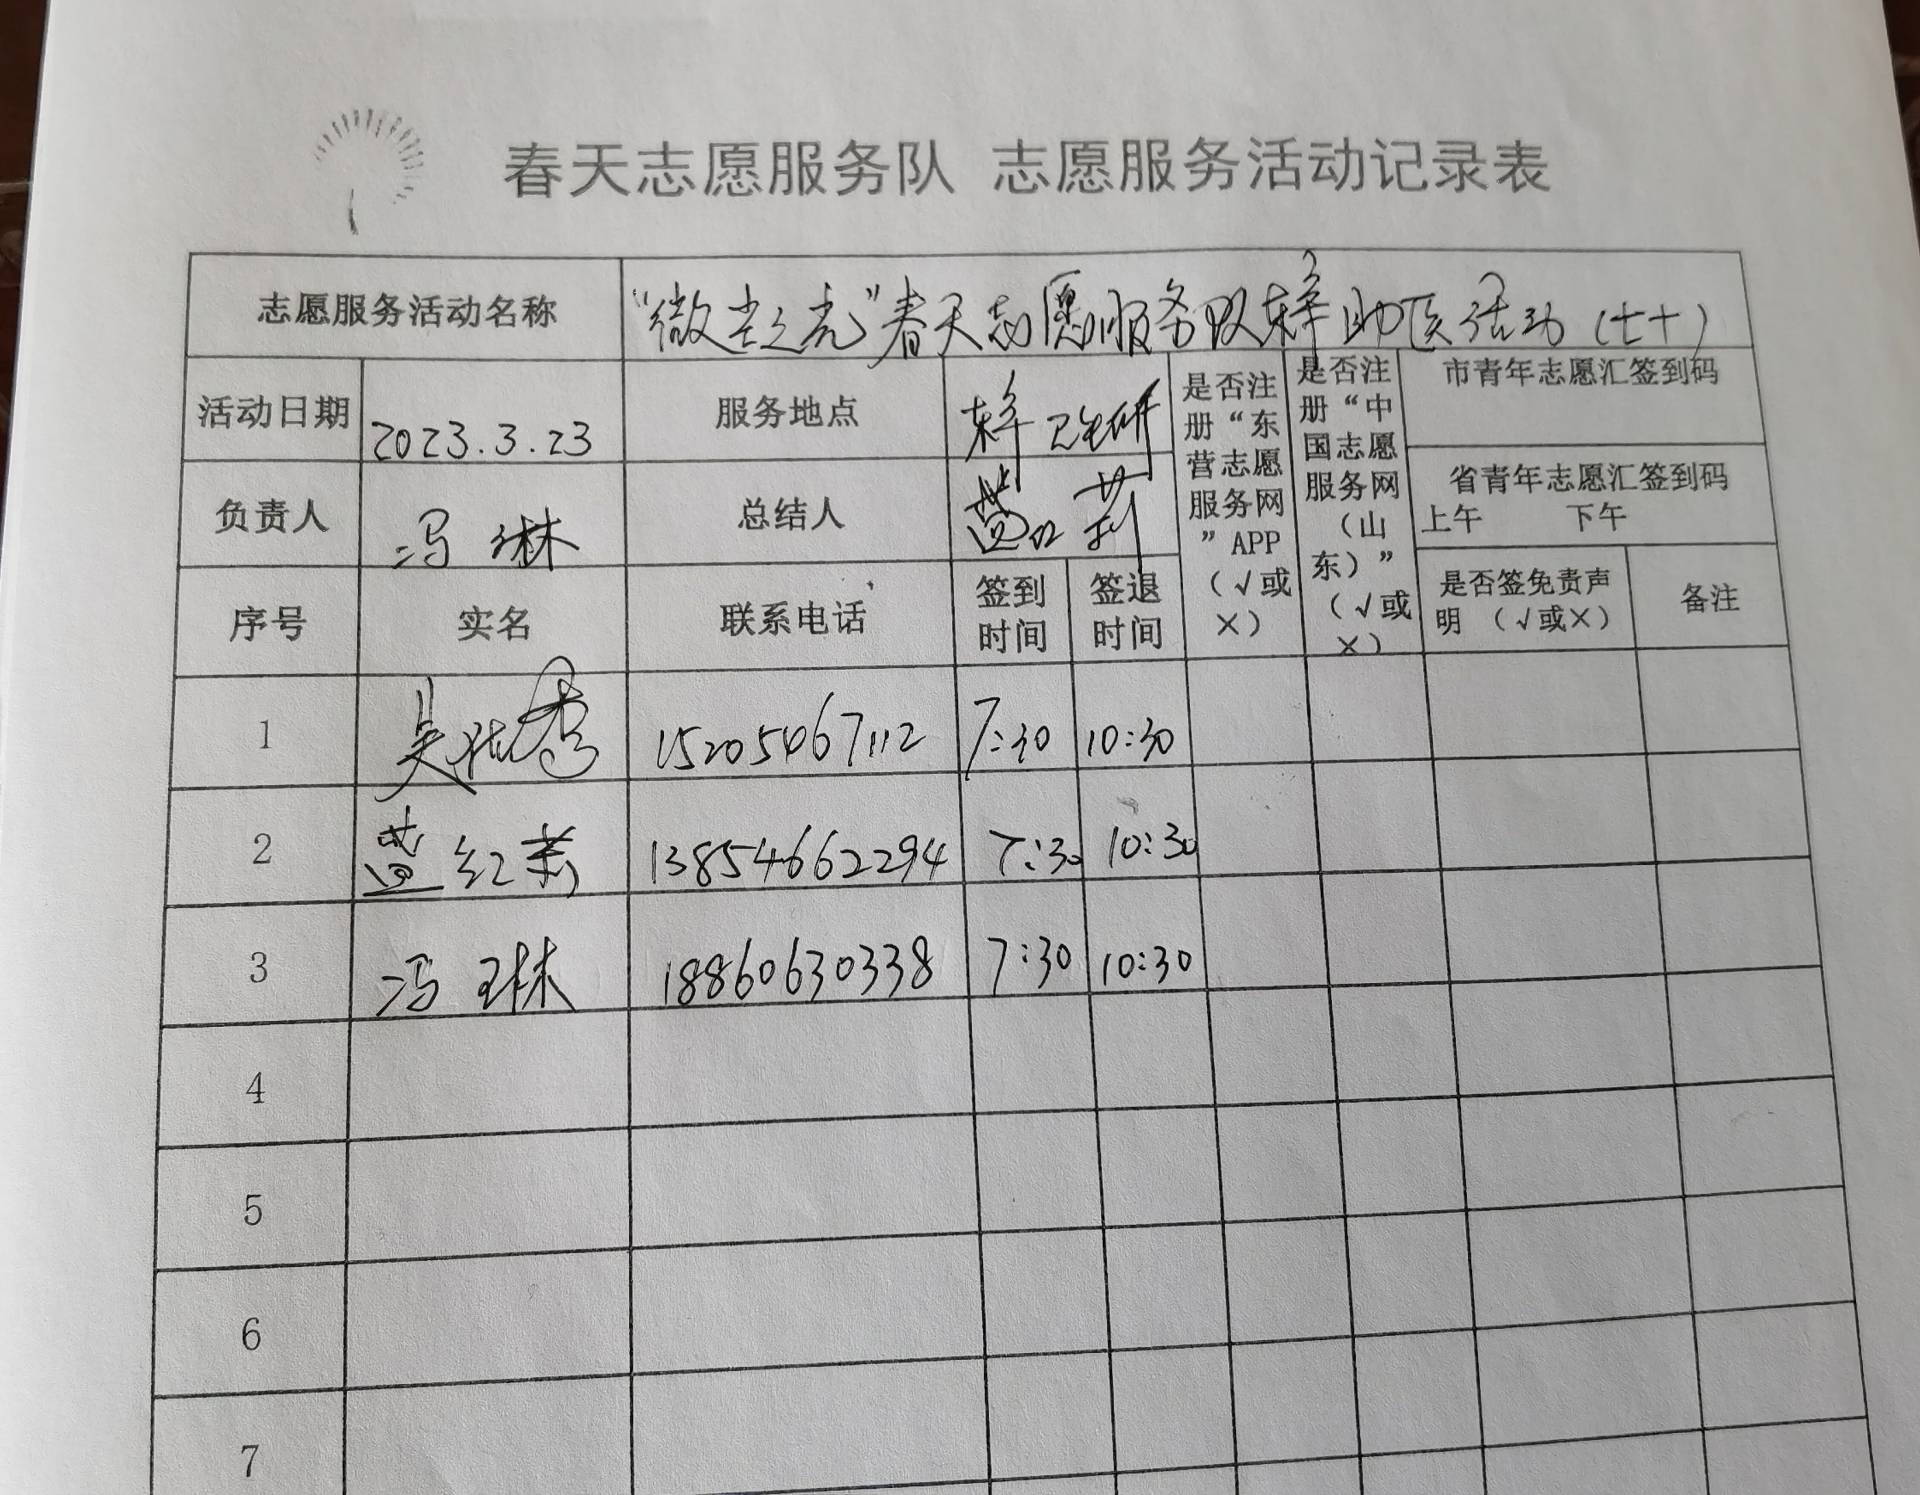 春天志愿服务队 志愿服务活动记录表
志愿服务活动名称 “微尘之光”春天志愿服务队 助医活动(七十)
活动日期 2023.3.23 服务地点
是否注册“东营志愿服务网”APP(√或×)
是否注册“中国志愿服务网(山东)”(√或×)
市青年志愿汇签到码
负责人 冯琳 总结人
省青年志愿汇签到码
上午 下午
序号 实名 联系电话 签到时间 签退时间 是否签免责声明(√或×) 备注
1 吴 秀 15205467112 7:30 10:30
2 红 13854662294 7:30 10:30
3 冯琳 18860630338 7:30 10:30
4
5
6
7